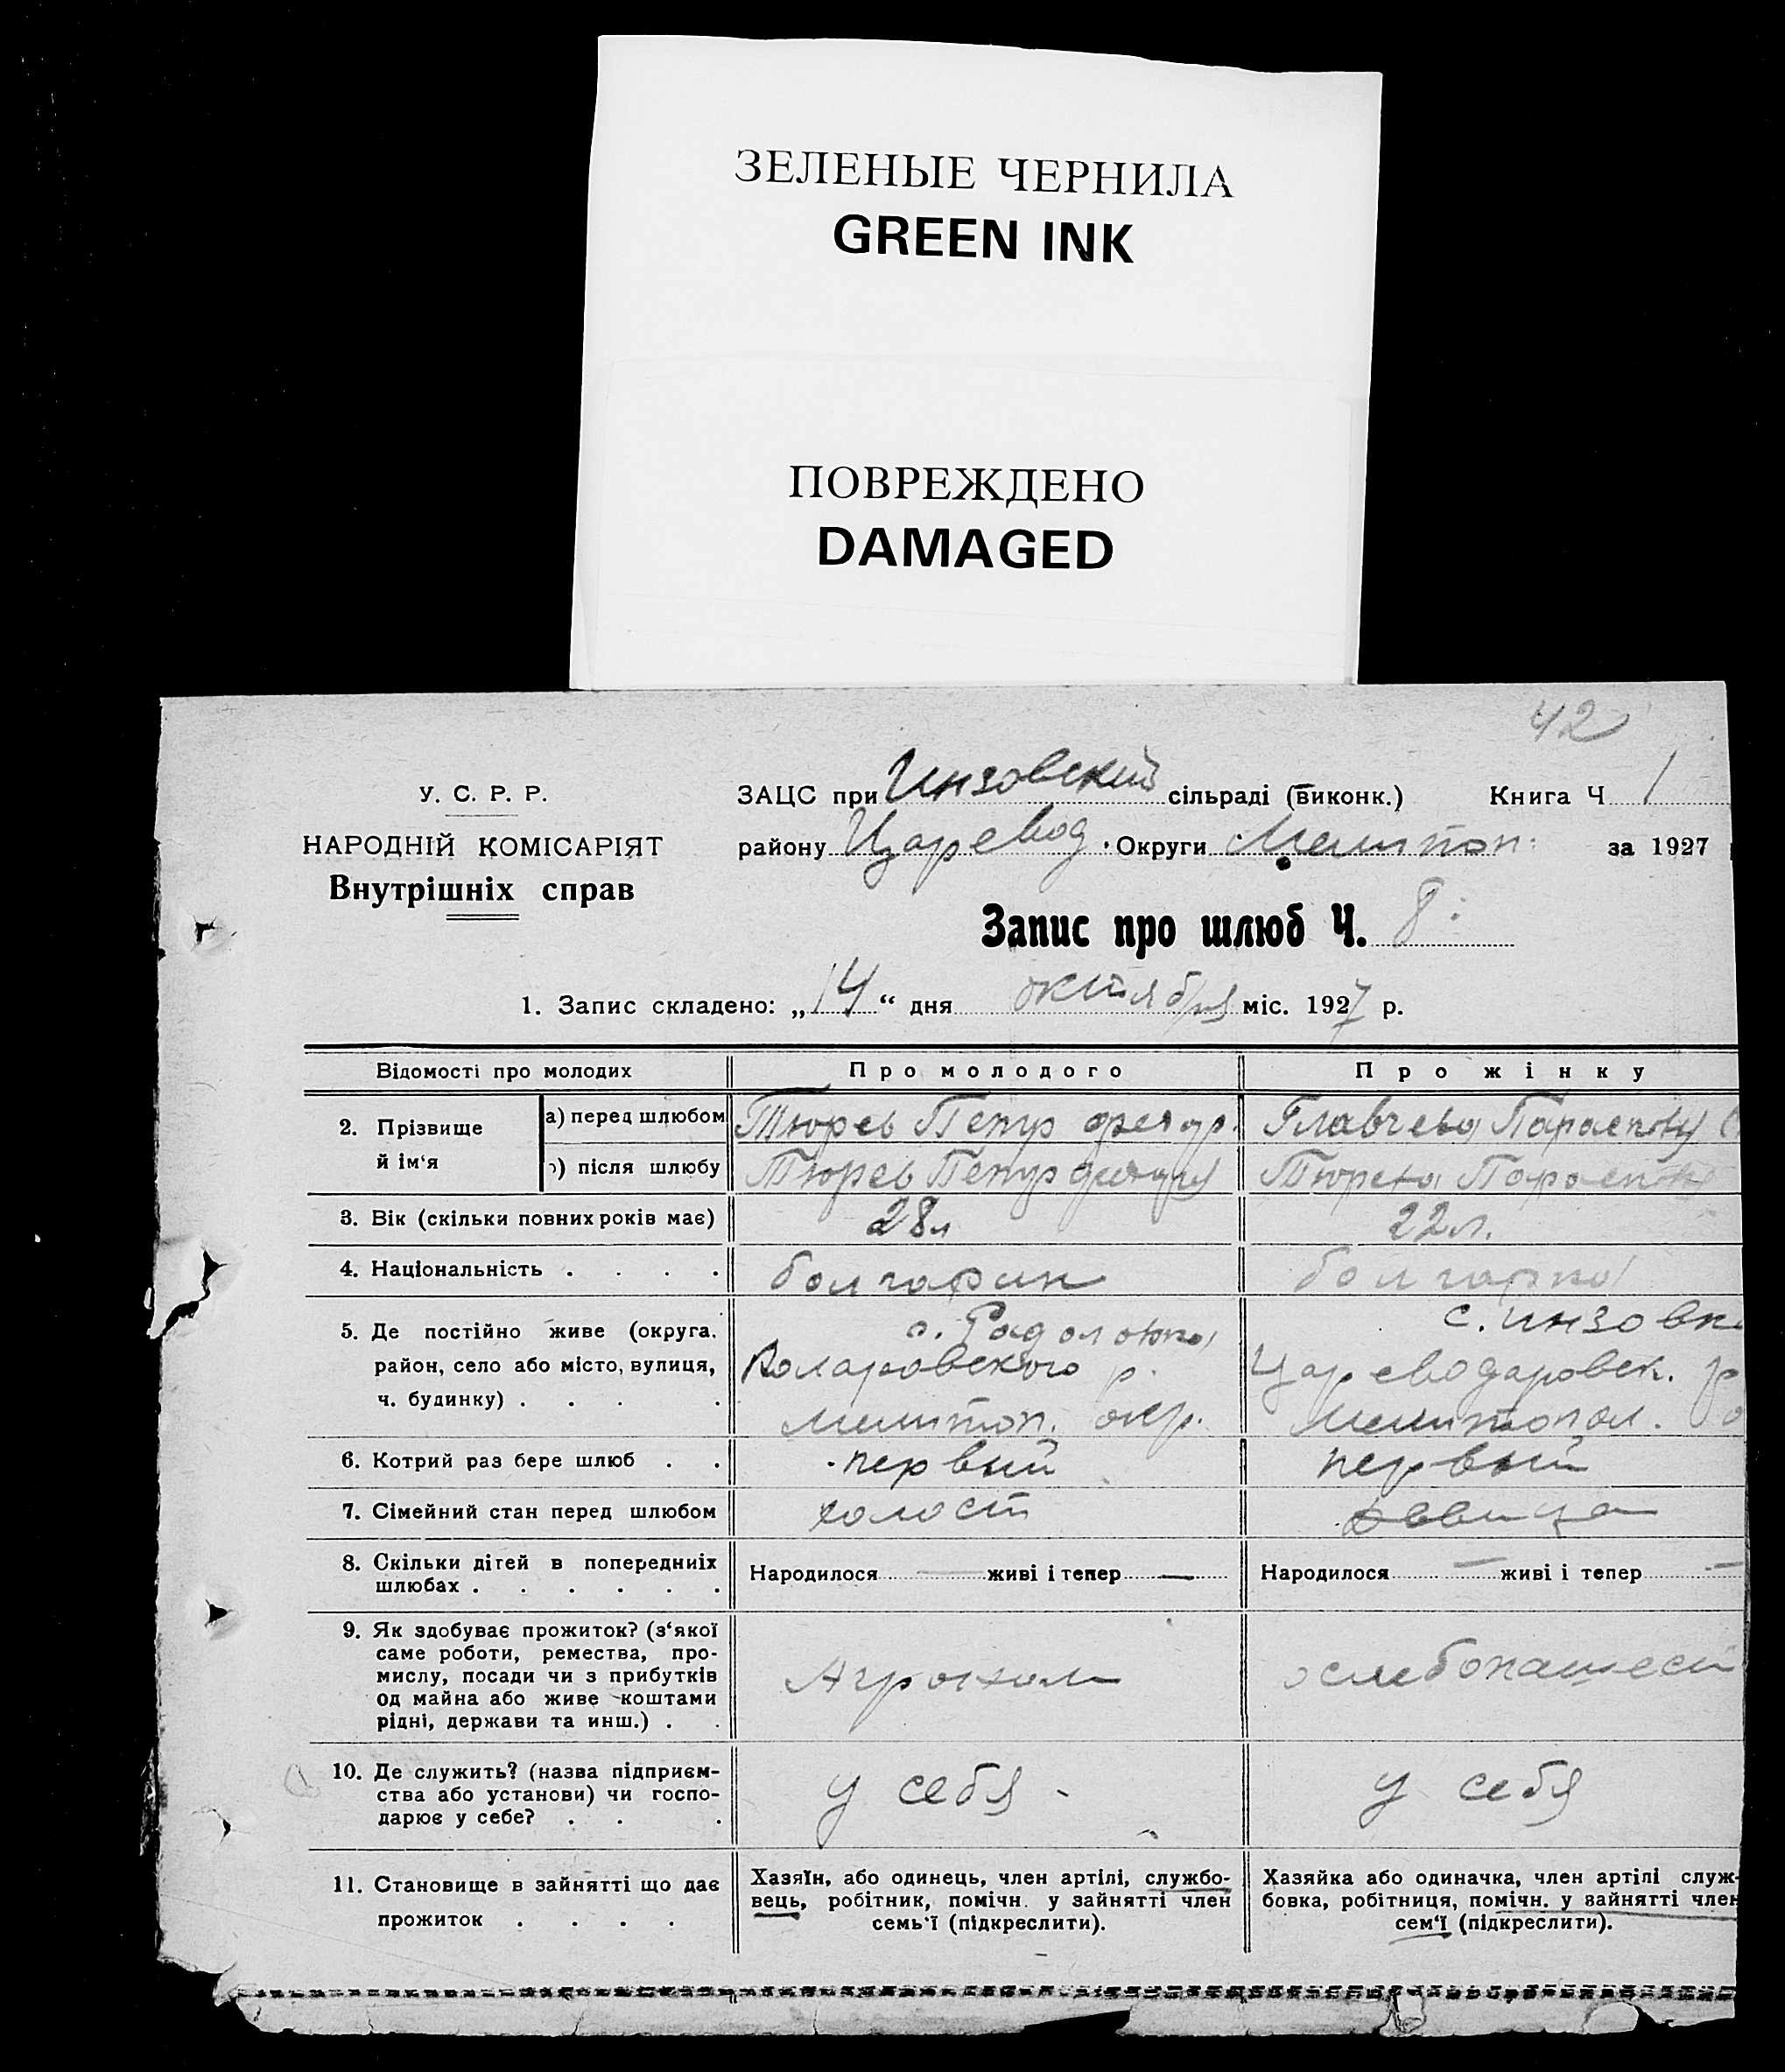 ЗЕЛЕНЫЕ ЧЕРНИЛА
GREEN INK
ПОВРЕЖДЕНО
DAMAGED
42
У. С. Р. Р.
НАРОДНІЙ КОМІСАРІЯТ
Внутрішніх справ
ЗАЦС при Инзовский сільраді (виконк.) Книга Ч 1
району Царевод. Округи Мелитоп. за 1927
Запис про шлюб Ч. 8
1. Запис складено: „14“ дня октября міс. 1927 р.
Відомості про молодих
Про молодого
Про жінку
2. Прізвище й ім‘я
а) перед шлюбом
Тюрев Петр
Главчева
) після шлюбу
Тюрев Петр
Тюрева
3. Вік (скільки повних років має)
28 л
22 л.
4. Національність . . . .
болгарин
болгарка
5. Де постійно живе (округа.
район, село або місто, вулиця,
ч. будинку) . . . .
Коларовского р.
Мелитоп. окр.
с. Инзовк
Цареводаровск. р
Мелитопол.
6. Котрий раз бере шлюб . .
первый
первый
7. Сімейний стан перед шлюбом
холост
девица
8. Скільки дітей в попередниіх
шлюбах . . . . . .
Народилося — живі і тепер —
Народилося — живі і тепер —
9. Як здобуває прожиток? (з‘якої
саме роботи, ремества, про-
мислу, посади чи з прибутків
од майна або живе коштами
рідні, держави та инш.) . .
Агроном
10. Де служить? (назва підприєм-
ства або установи) чи госпо-
дарює у себе? . . .
у себя -
у себя
11. Становище в зайнятті що дає
прожиток . . . .
Хазяїн, або одинець, член артілі, службо-
вець, робітник, помічн. у зайнятті член
семь‘ї (підкреслити).
Хазяйка або одиначка, член артілі служ-
бовка, робітниця, помічн. у зайнятті член
сем‘ї (підкреслити).